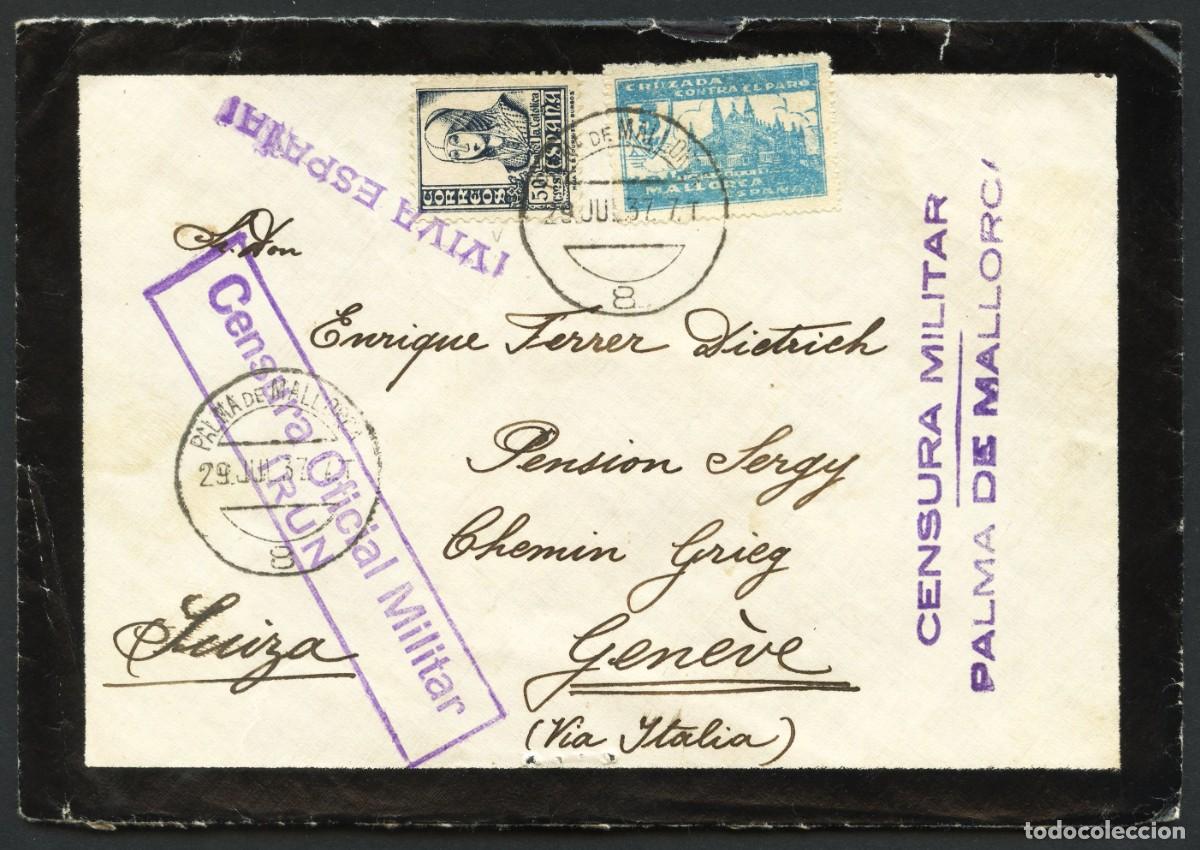 CRUZADA
CONTRA EL PARO
MALLORCA
ESPAÑA
CORREOS
50
ESPAÑA
PALMA DE MALLORCA
29.JUL.37.7.T
8
¡VIVA ESPAÑA!
Sr. Don
Enrique Ferrer Dietrich
Pension Sergy
Chemin Grieg
Genève
(Via Italia)
Suiza
Censura Oficial Militar
IRUN
PALMA DE MALLORCA
29.JUL.37.7.T
8
CENSURA MILITAR
PALMA DE MALLORCA
todocoleccion